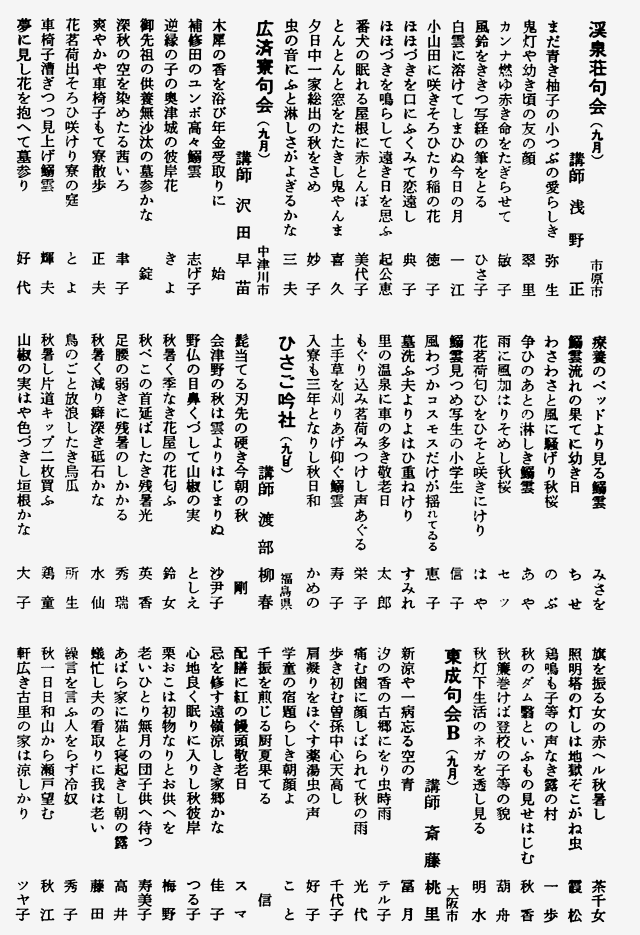 渓泉荘句会（九月）
市原市
講師 浅野 正
まだ青き柚子の小つぶの愛らしき 弥生
鬼灯や幼き頃の友の顔 翠里
カンナ燃ゆ赤き命をたぎらせて 敏子
風鈴をききつ写経の筆をとる ひさ子
白雲に溶けてしまひぬ今日の月 一江
小山田に咲きそろひたり稲の花 徳子
ほほづきを口にふくみて恋遠し 典子
ほほづきを鳴らして遠き日を思ふ 起公恵
番犬の眠れる屋根に赤とんぼ 美代子
とんとんと窓をたたきし鬼やんま 喜久
夕日中一家総出の秋をさめ 妙子
虫の音にふと淋しさがよぎるかな 三夫
広済寮句会（九月）
中津川市
講師 沢田早苗
木犀の香を浴び年金受取りに 始
補修田のユンボ高々鰯雲 志げ子
逆縁の子の奥津城の彼岸花 きよ
御先祖の供養無沙汰の墓参かな 錠
深秋の空を染めたる茜いろ 聿子
爽やかや車椅子もて寮散歩 正夫
花茗荷出そろひ咲けり寮の庭 とよ
車椅子漕ぎつつ見上げ鰯雲 輝夫
夢に見し花を抱へて墓参り 好代
療養のベッドより見る鰯雲 みさを
鰯雲流れの果てに幼き日 ちせ
わさわさと風に騒げり秋桜 のぶ
争ひのあとの淋しき鰯雲 あや
雨に風加はりそめし秋桜 セツ
花茗荷匂ひをひそと咲きにけり はや
鰯雲見つめ写生の小学生 信子
風わづかコスモスだけが揺れてゐる 恵子
墓洗ふ夫よりよはひ重ねけり すみれ
里の温泉に車の多き敬老日 太郎
もぐり込み茗荷みつけし声あぐる 栄子
土手草を刈りあげ仰ぐ鰯雲 寿子
入寮も三年となりし秋日和 かめの
ひさご吟社（九月）
福島県
講師 渡部柳春
髭当てる刃先の硬き今朝の秋 剛
会津野の秋は雲よりはじまりぬ 沙尹子
野仏の目鼻くづして山椒の実 としえ
秋暑く季なき花屋の花匂ふ 鈴女
秋べこの首延ばしたき残暑光 英香
足腰の弱きに残暑のしかかる 秀瑞
秋暑く減り癖深き砥石かな 水仙
鳥のごと放浪したき烏瓜 所生
秋暑し片道キップ二枚買ふ 鶏童
山椒の実はや色づきし垣根かな 大子
旗を振る女の赤ヘル秋暑し 茶千女
照明塔の灯しは地獄そこがね虫 霞松
鶏鳴も子等の声なき露の村 一歩
秋のダム翳といふもの見せはじむ 秋香
秋簾巻けば登校の子等の貌 葫舟
秋灯下生活のネガを透し見る 明水
東成句会B（九月）
大阪市
講師 斎藤桃里
新涼や一病忘る空の青 冨月
汐の香の古郷にをり虫時雨 テル子
痛む歯に顔しばられて秋の雨 光代
歩き初む曽孫中心天高し 千代子
肩凝りをほぐす薬湯虫の声 好子
学童の宿題らしき朝顔よ こと
千振を煎じる厨夏果てる 信
配膳に紅の饅頭敬老日 スマ
忌を修す遠嶺涼しき家郷かな 佳子
心地良く眠りに入りし秋彼岸 つる子
栗おこは初物なりとお供へを 梅野
老いひとり無月の団子供へ待つ 寿美子
あばら家に猫と寝起きし朝の露 高井
蟻忙し夫の看取りに我は老い 藤田
繰言を言ふ人をらず冷奴 秀子
秋一日日和山から瀬戸望む 秋江
軒広き古里の家は涼しかり ツヤ子